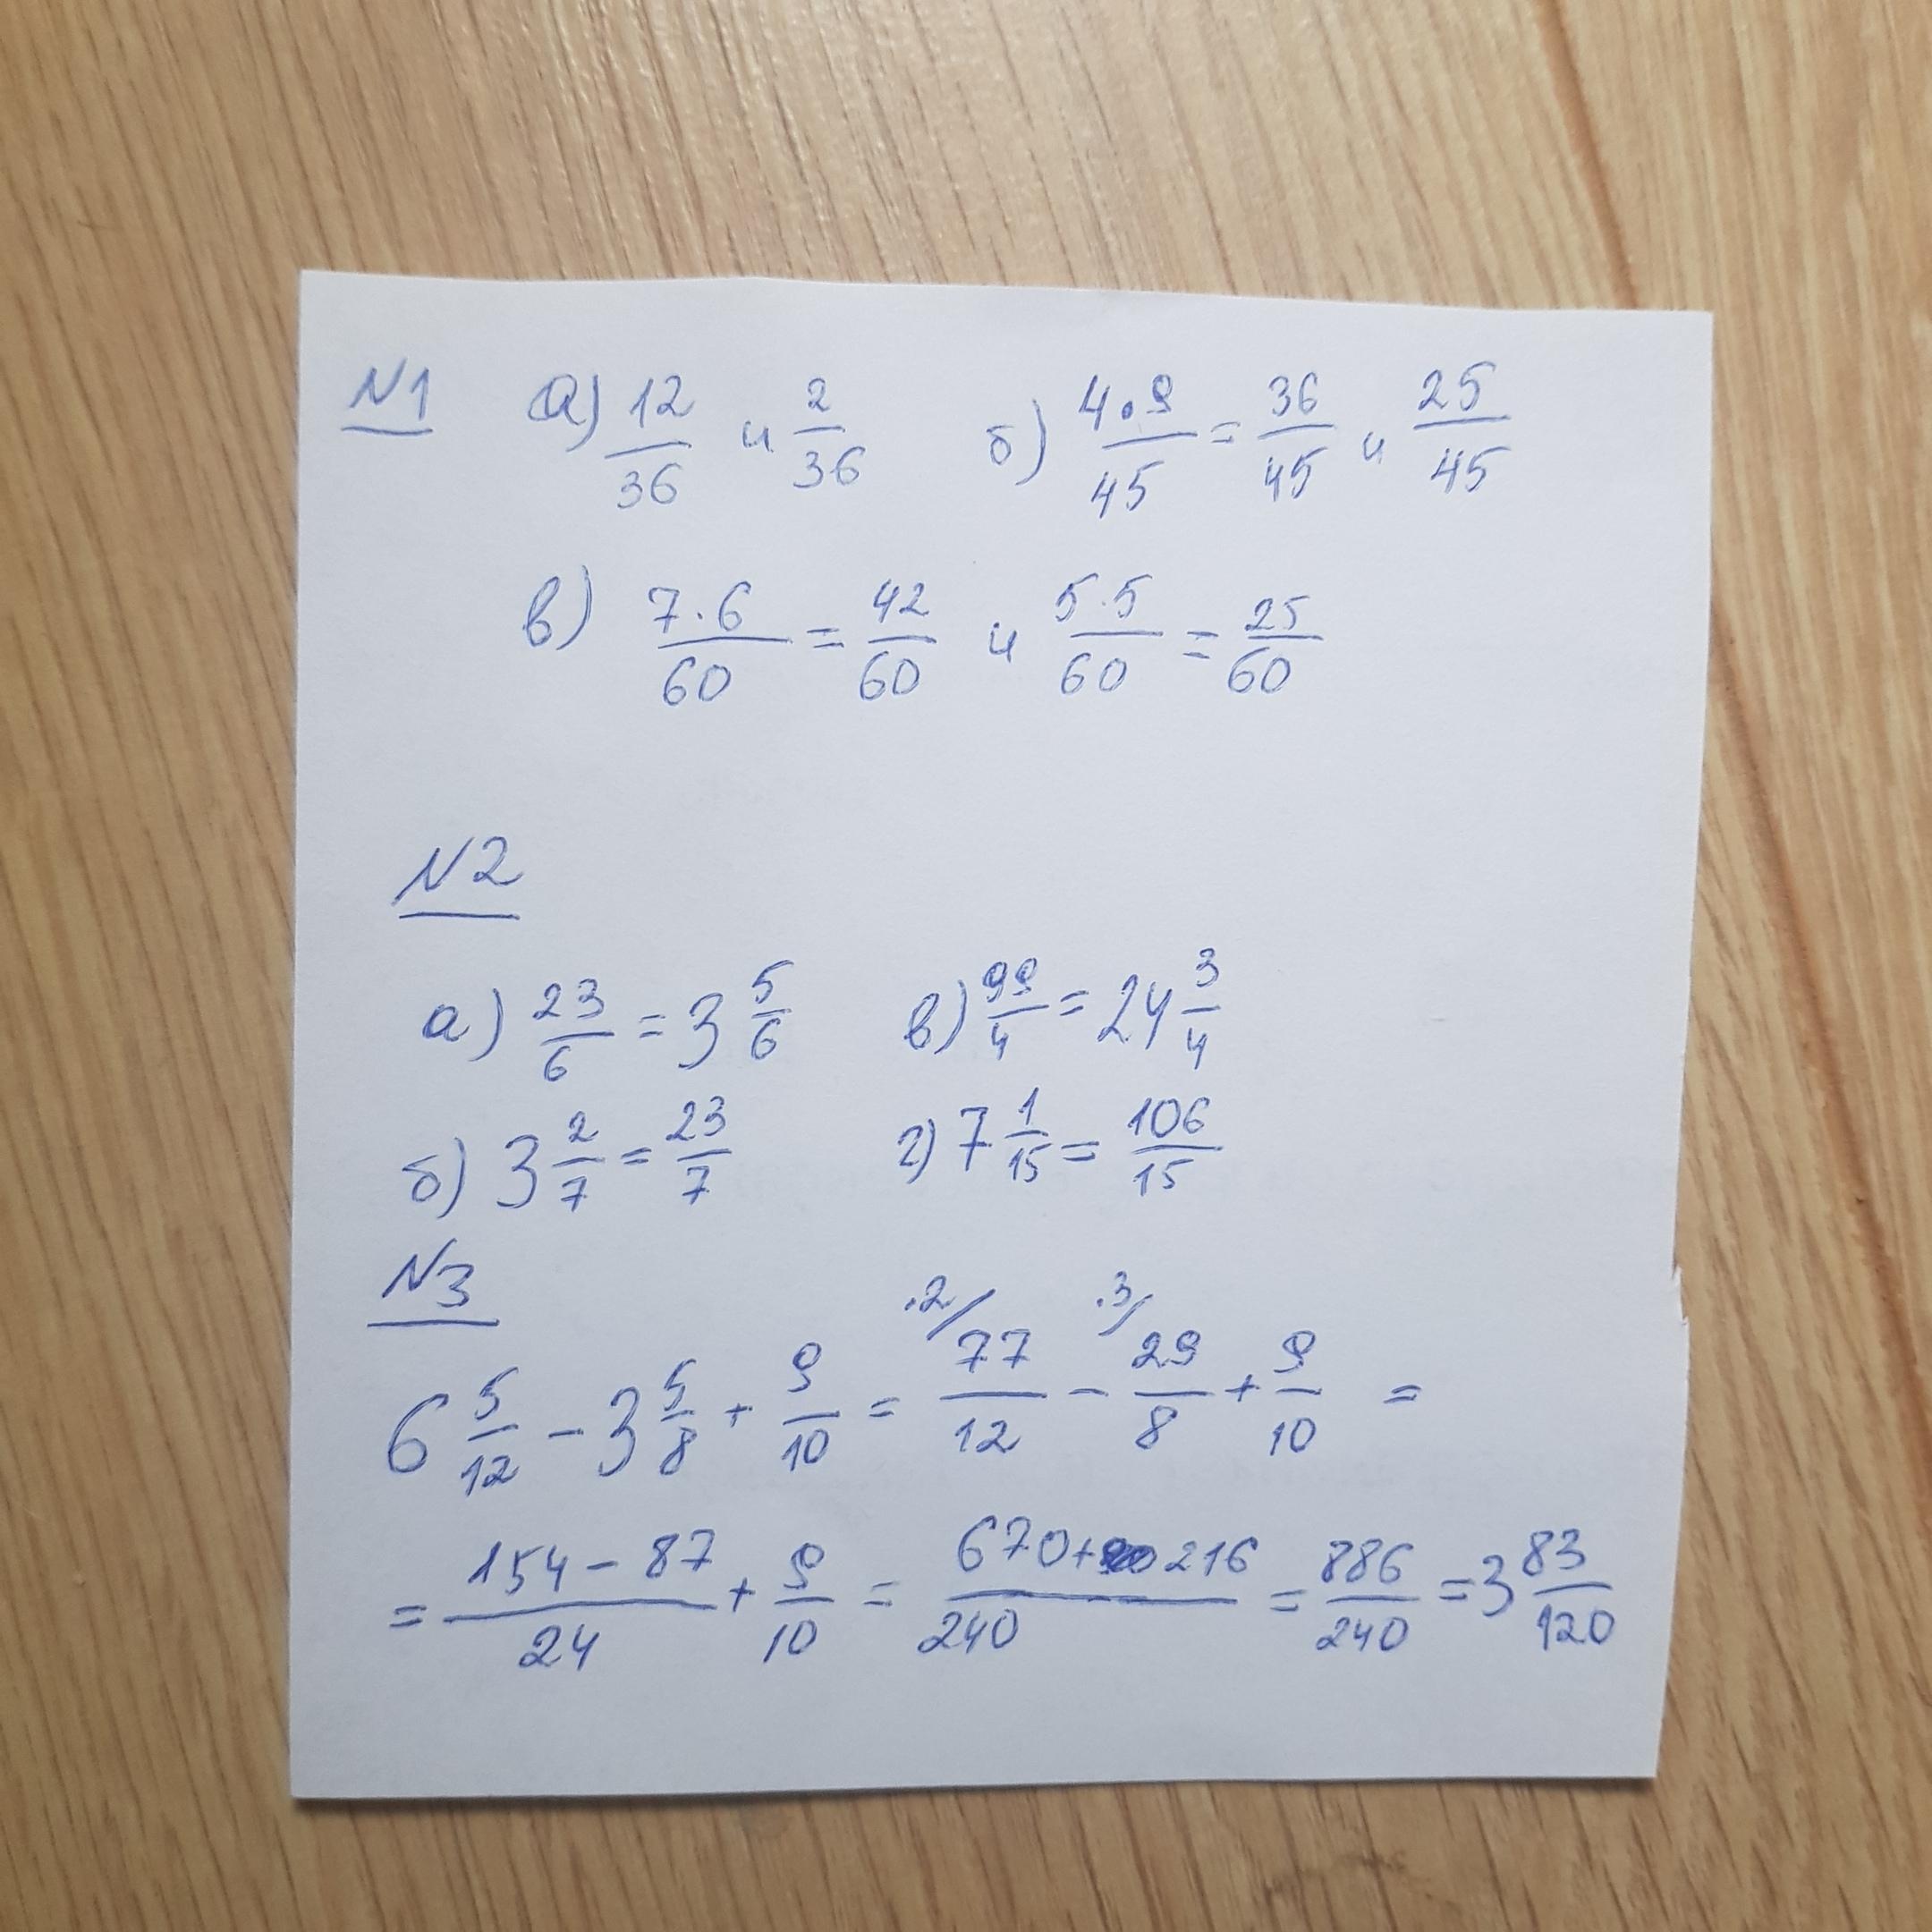 N1 а) 12/36 и 2/36 б) 4·9/45 = 36/45 и 25/45
в) 7·6/60 = 42/60 и 5·5/60 = 25/60
N2
а) 23/6 = 3 5/6 в) 99/4 = 24 3/4
б) 3 2/7 = 23/7 г) 7 1/15 = 106/15
N3
6 5/12 - 3 5/8 + 9/10 = ·2/ 77/12 - ·3/ 29/8 + 9/10 =
= 154 - 87/24 + 9/10 = 670+216/240 = 886/240 = 3 83/120